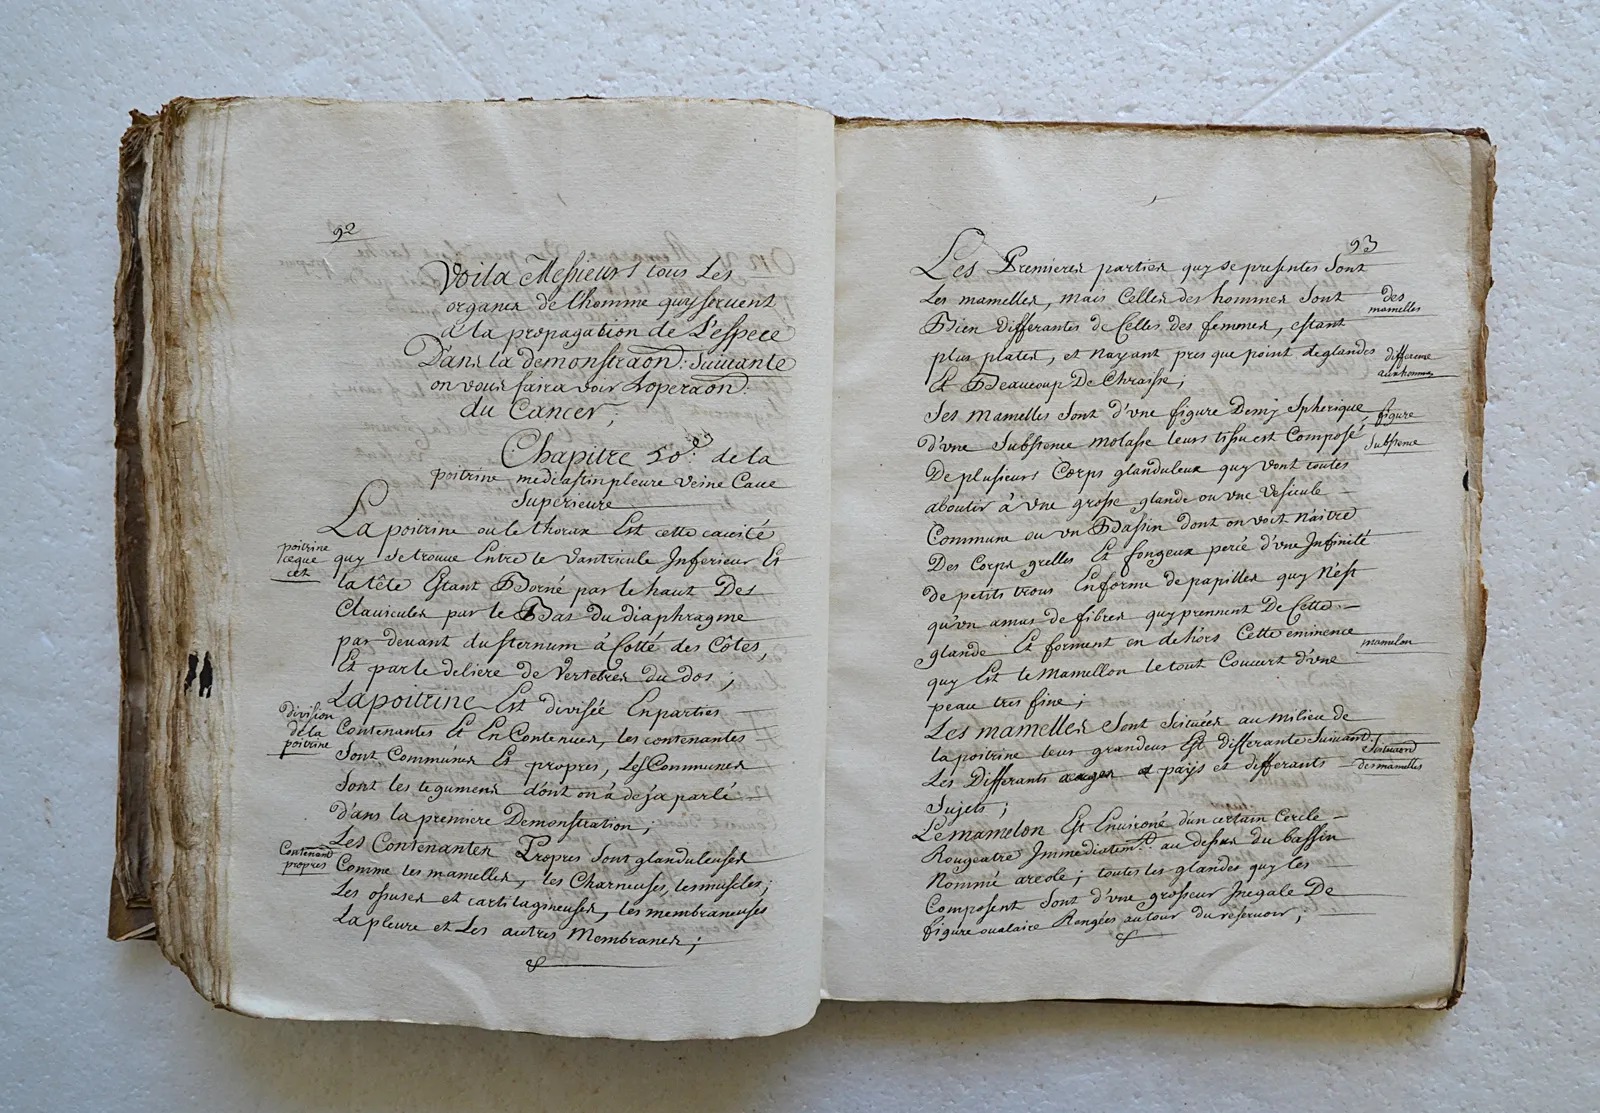 92
Voila Messieurs tous les
organes de l'homme quy seruent
a la propagation de L'espece
Dans la demonstraon: Suiuante
on vous faira voir Loperaon:
du Cancer;
Chapitre 10e. de la
poitrine mediastin pleure Veine Caue
Superieure
La poitrine ou le thorax Est cette cauité
poitrine
ceque
cest
quy se trouue Entre le Vantricule Inferieur Et
la tête Estant Borné par le haut Des
Clauicules par le Bas du diaphragme
par deuant du sternum à Cotté des Côtes,
Et par le deliere de Vertebres du dos;
La poitrine Est divisée En parties
division
de la
poitrine
Contenantes Et En Contenues, les contenantes
Sont Communes Et propres, Les Communes
Sont les tegumens dont on à deja parlé
D'ans la premiere Demonstration;
Les Contenantes Propres Sont glanduleuses
Contenant
propres
Comme les mamelles, les Charneuses, les muscles;
Les osuses et cartilagineuses, les membraneuses
La pleure et Les autres Membranes;
93
Les Premieres parties quy se presentes Sont
Les mamelles, mais Celles des hommes Sont
des
mamelles
Bien differantes de Celles des femmes, estant
plus plates, et n'ayant pres que point de glandes
differenc
aux hommes
Et Beaucoup De Chraisse;
Ses mamelles Sont d'vne figure Demj Spherique
figure
D'vne Substence molasse leurs tissu est Composé
Substence
De plusieurs Corps glanduleux quy vont toutes
aboutir à vne grosse glande ou vne Vesicule
Commune ou vn Bassin dont on voit n'aitre
Des Corps grelles Et fongeux percé d'vne Infinité
de petits trous Enforme de papilles quy N'est
qu'vn amas de fibres quy prennent De Cette
glande Et forment en dehors Cette eminence
mamelon
quy Est le Mamellon le tout Couuert d'vne
peau tres fine;
Les mamelles Sont Scituées au milieu de
la poitrine leur grandeur Est differante Suiuant
Scituaond
des mamelles
Les Differants ages et païs et differants
Sujets;
Le mamelon Est Enuironé d'un certain Cercle
Rougeatre Immediatemt. au desus du bassin
Nommé areole; toutes les glandes quy les
Composent Sont d'vne grosseur Inegale De
figure oualaire Rengées autour du reservoir;